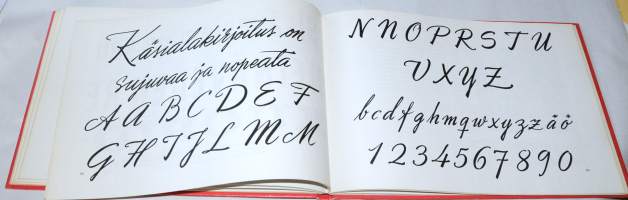 Käsialakirjoitus on
sujuvaa ja nopeata
A A B C D E F
G H I J L M M
N N O P R S T U
V X Y Z
b c d f g h m q w x y z z å ö
1 2 3 4 5 6 7 8 9 0